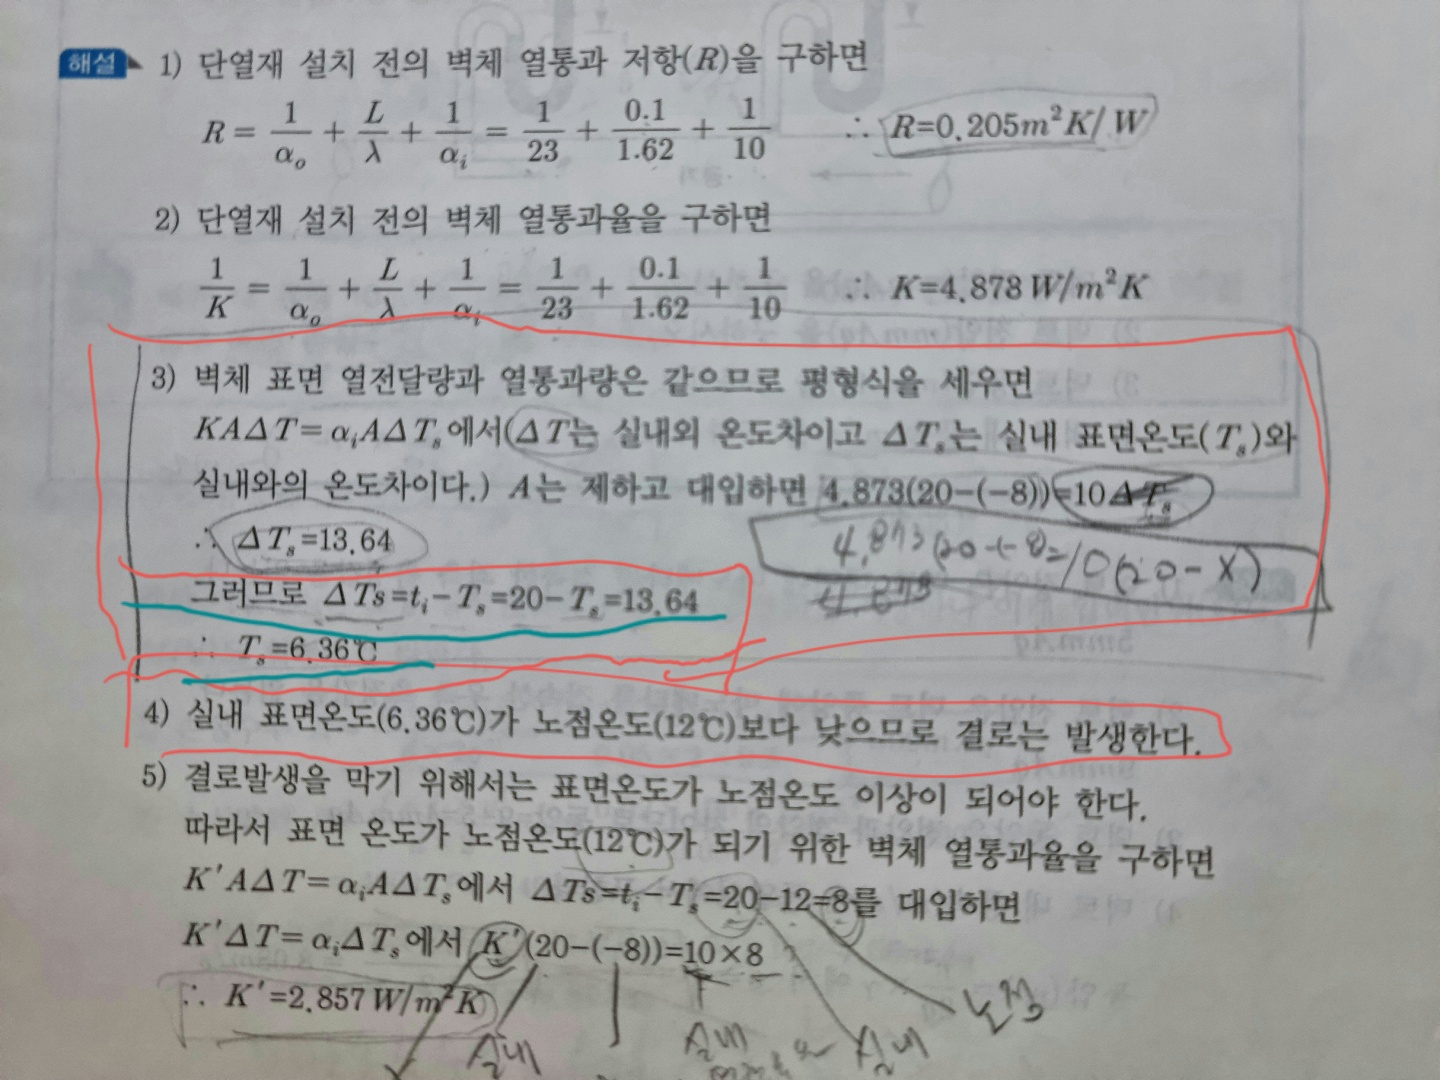 해설 1) 단열재 설치 전의 벽체 열통과 저항(R)을 구하면
R = 1/αₒ + L/λ + 1/αᵢ = 1/23 + 0.1/1.62 + 1/10 ∴ R=0.205m²K/W
2) 단열재 설치 전의 벽체 열통과율을 구하면
1/K = 1/αₒ + L/λ + 1/αᵢ = 1/23 + 0.1/1.62 + 1/10 ∴ K=4.878 W/m²K
3) 벽체 표면 열전달량과 열통과량은 같으므로 평형식을 세우면
KAΔT = αᵢAΔTₛ에서(ΔT는 실내외 온도차이고 ΔTₛ는 실내 표면온도(Tₛ)와
실내와의 온도차이다.) A는 제하고 대입하면 4.873(20-(-8))=10ΔTₛ
∴ ΔTₛ=13.64
4.873(20-(-8)=10(20-X)
4.873
그러므로 ΔTs=tᵢ-Tₛ=20-Tₛ=13.64
∴ Tₛ=6.36℃
4) 실내 표면온도(6.36℃)가 노점온도(12℃)보다 낮으므로 결로는 발생한다.
5) 결로발생을 막기 위해서는 표면온도가 노점온도 이상이 되어야 한다.
따라서 표면 온도가 노점온도(12℃)가 되기 위한 벽체 열통과율을 구하면
K′AΔT = αᵢAΔTₛ에서 ΔTs=tᵢ-Tₛ=20-12=8를 대입하면
K′ΔT = αᵢΔTₛ에서 K′(20-(-8))=10×8
∴ K′=2.857 W/m²K
실내 실내 실내 노점